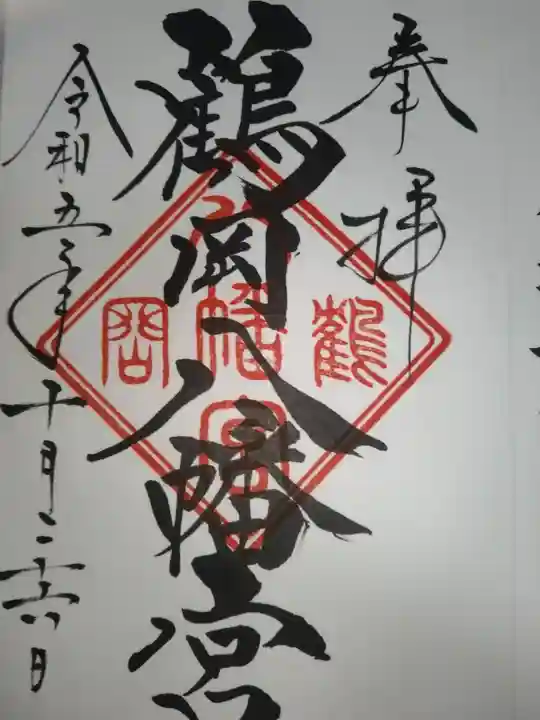 奉拝
鶴岡八幡宮
令和五年十月二十六日
鶴
八幡宮
岡